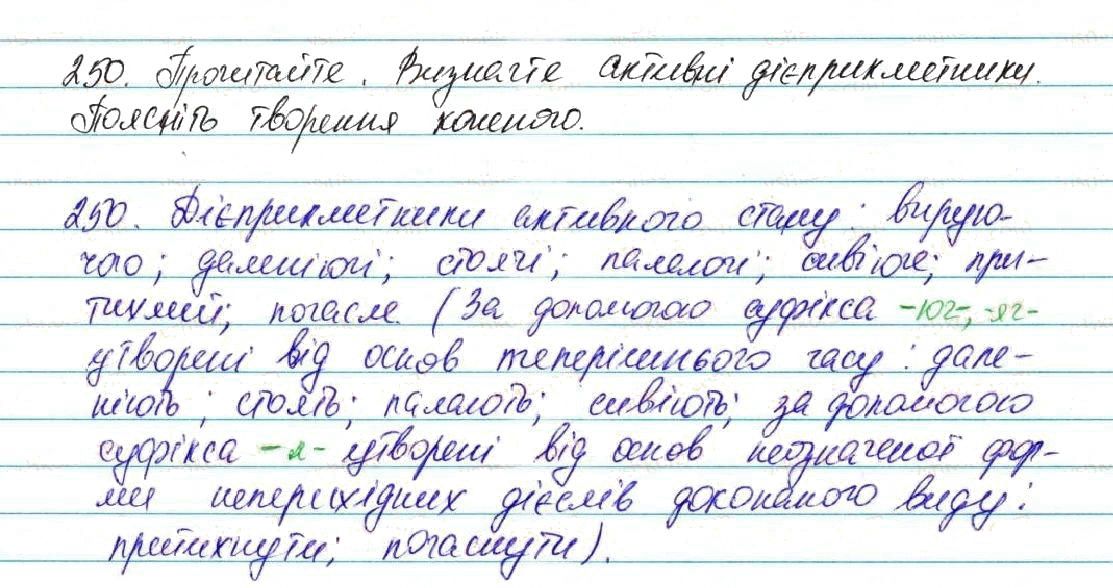 250. Прочитайте. Визначте активні дієприкметники.
Поясніть творення кожного.
250. Дієприкметники активного стану: вирую-
чого; даленіючі; стоячі; палаючі; сивіюче; при-
тихлий; погасле (За допомогою суфікса -юч-, -яч-
утворені від основ теперішнього часу: дале-
ніють; стоять; палають; сивіють; за допомогою
суфікса -л- утворені від основ неозначеної фор-
ми неперехідних дієслів доконаного виду:
притихнути; погаснути).